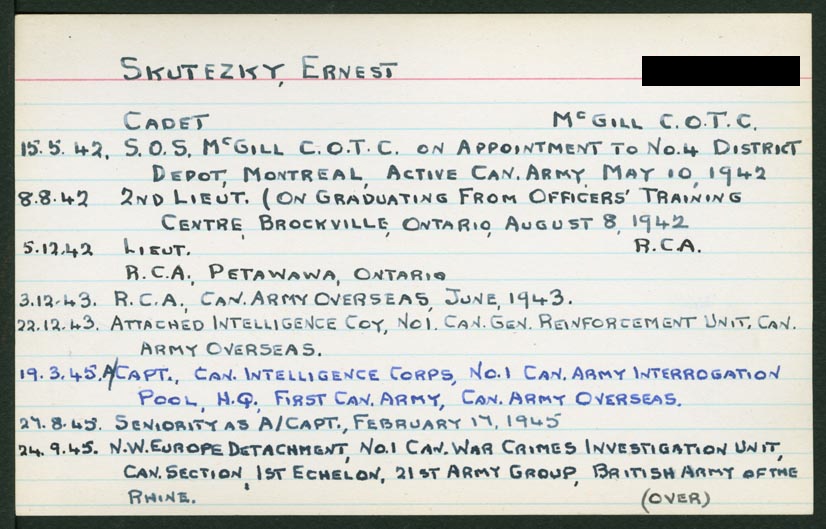 SKUTEZKY, ERNEST
CADET McGILL C.O.T.C.
15.5.42. S.O.S. McGILL C.O.T.C. ON APPOINTMENT TO No.4 DISTRICT
DEPOT, MONTREAL, ACTIVE CAN. ARMY, MAY 10, 1942
8.8.42 2ND LIEUT. (ON GRADUATING FROM OFFICERS' TRAINING
CENTRE, BROCKVILLE, ONTARIO, AUGUST 8, 1942
5.12.42 LIEUT. R.C.A.
R.C.A., PETAWAWA, ONTARIO
3.12.43. R.C.A., CAN. ARMY OVERSEAS, JUNE, 1943.
22.12.43. ATTACHED INTELLIGENCE COY, No1. CAN. GEN. REINFORCEMENT UNIT, CAN.
ARMY OVERSEAS.
19.3.45. A/CAPT., CAN. INTELLIGENCE CORPS, No.1 CAN. ARMY INTERROGATION
POOL, H.Q., FIRST CAN. ARMY, CAN. ARMY OVERSEAS.
27.8.45. SENIORITY AS A/CAPT., FEBRUARY 17, 1945
24.9.45. N.W. EUROPE DETACHMENT, No.1 CAN. WAR CRIMES INVESTIGATION UNIT,
CAN. SECTION, 1ST ECHELON, 21ST ARMY GROUP, BRITISH ARMY OF THE
RHINE. (OVER)